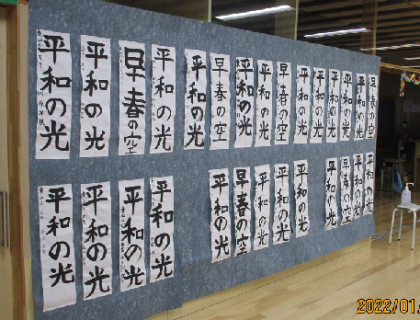 平和の光
平和の光
早春の空
平和の光
平和の光
早春の空
平和の光
平和の光
早春の空
平和の光
平和の光
平和の光
平和の光
平和の光
早春の空
平和の光
平和の光
平和の光
平和の光
平和の光
早春の空
平和の光
平和の光
平和の光
平和の光
早春の空
平和の光
平和の光
2022/01/